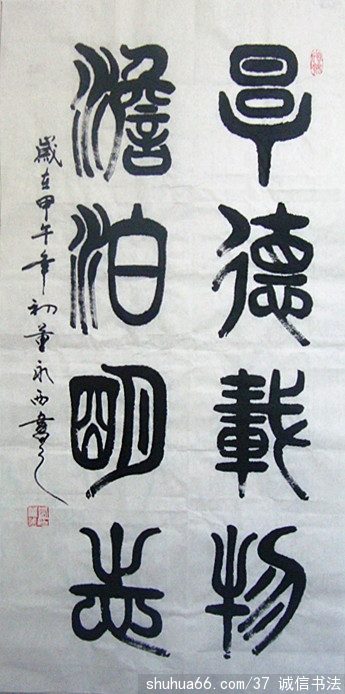 厚德載物
澹泊明志
歲在甲午年初董永西書之
shuhua66.com/37 诚信书法